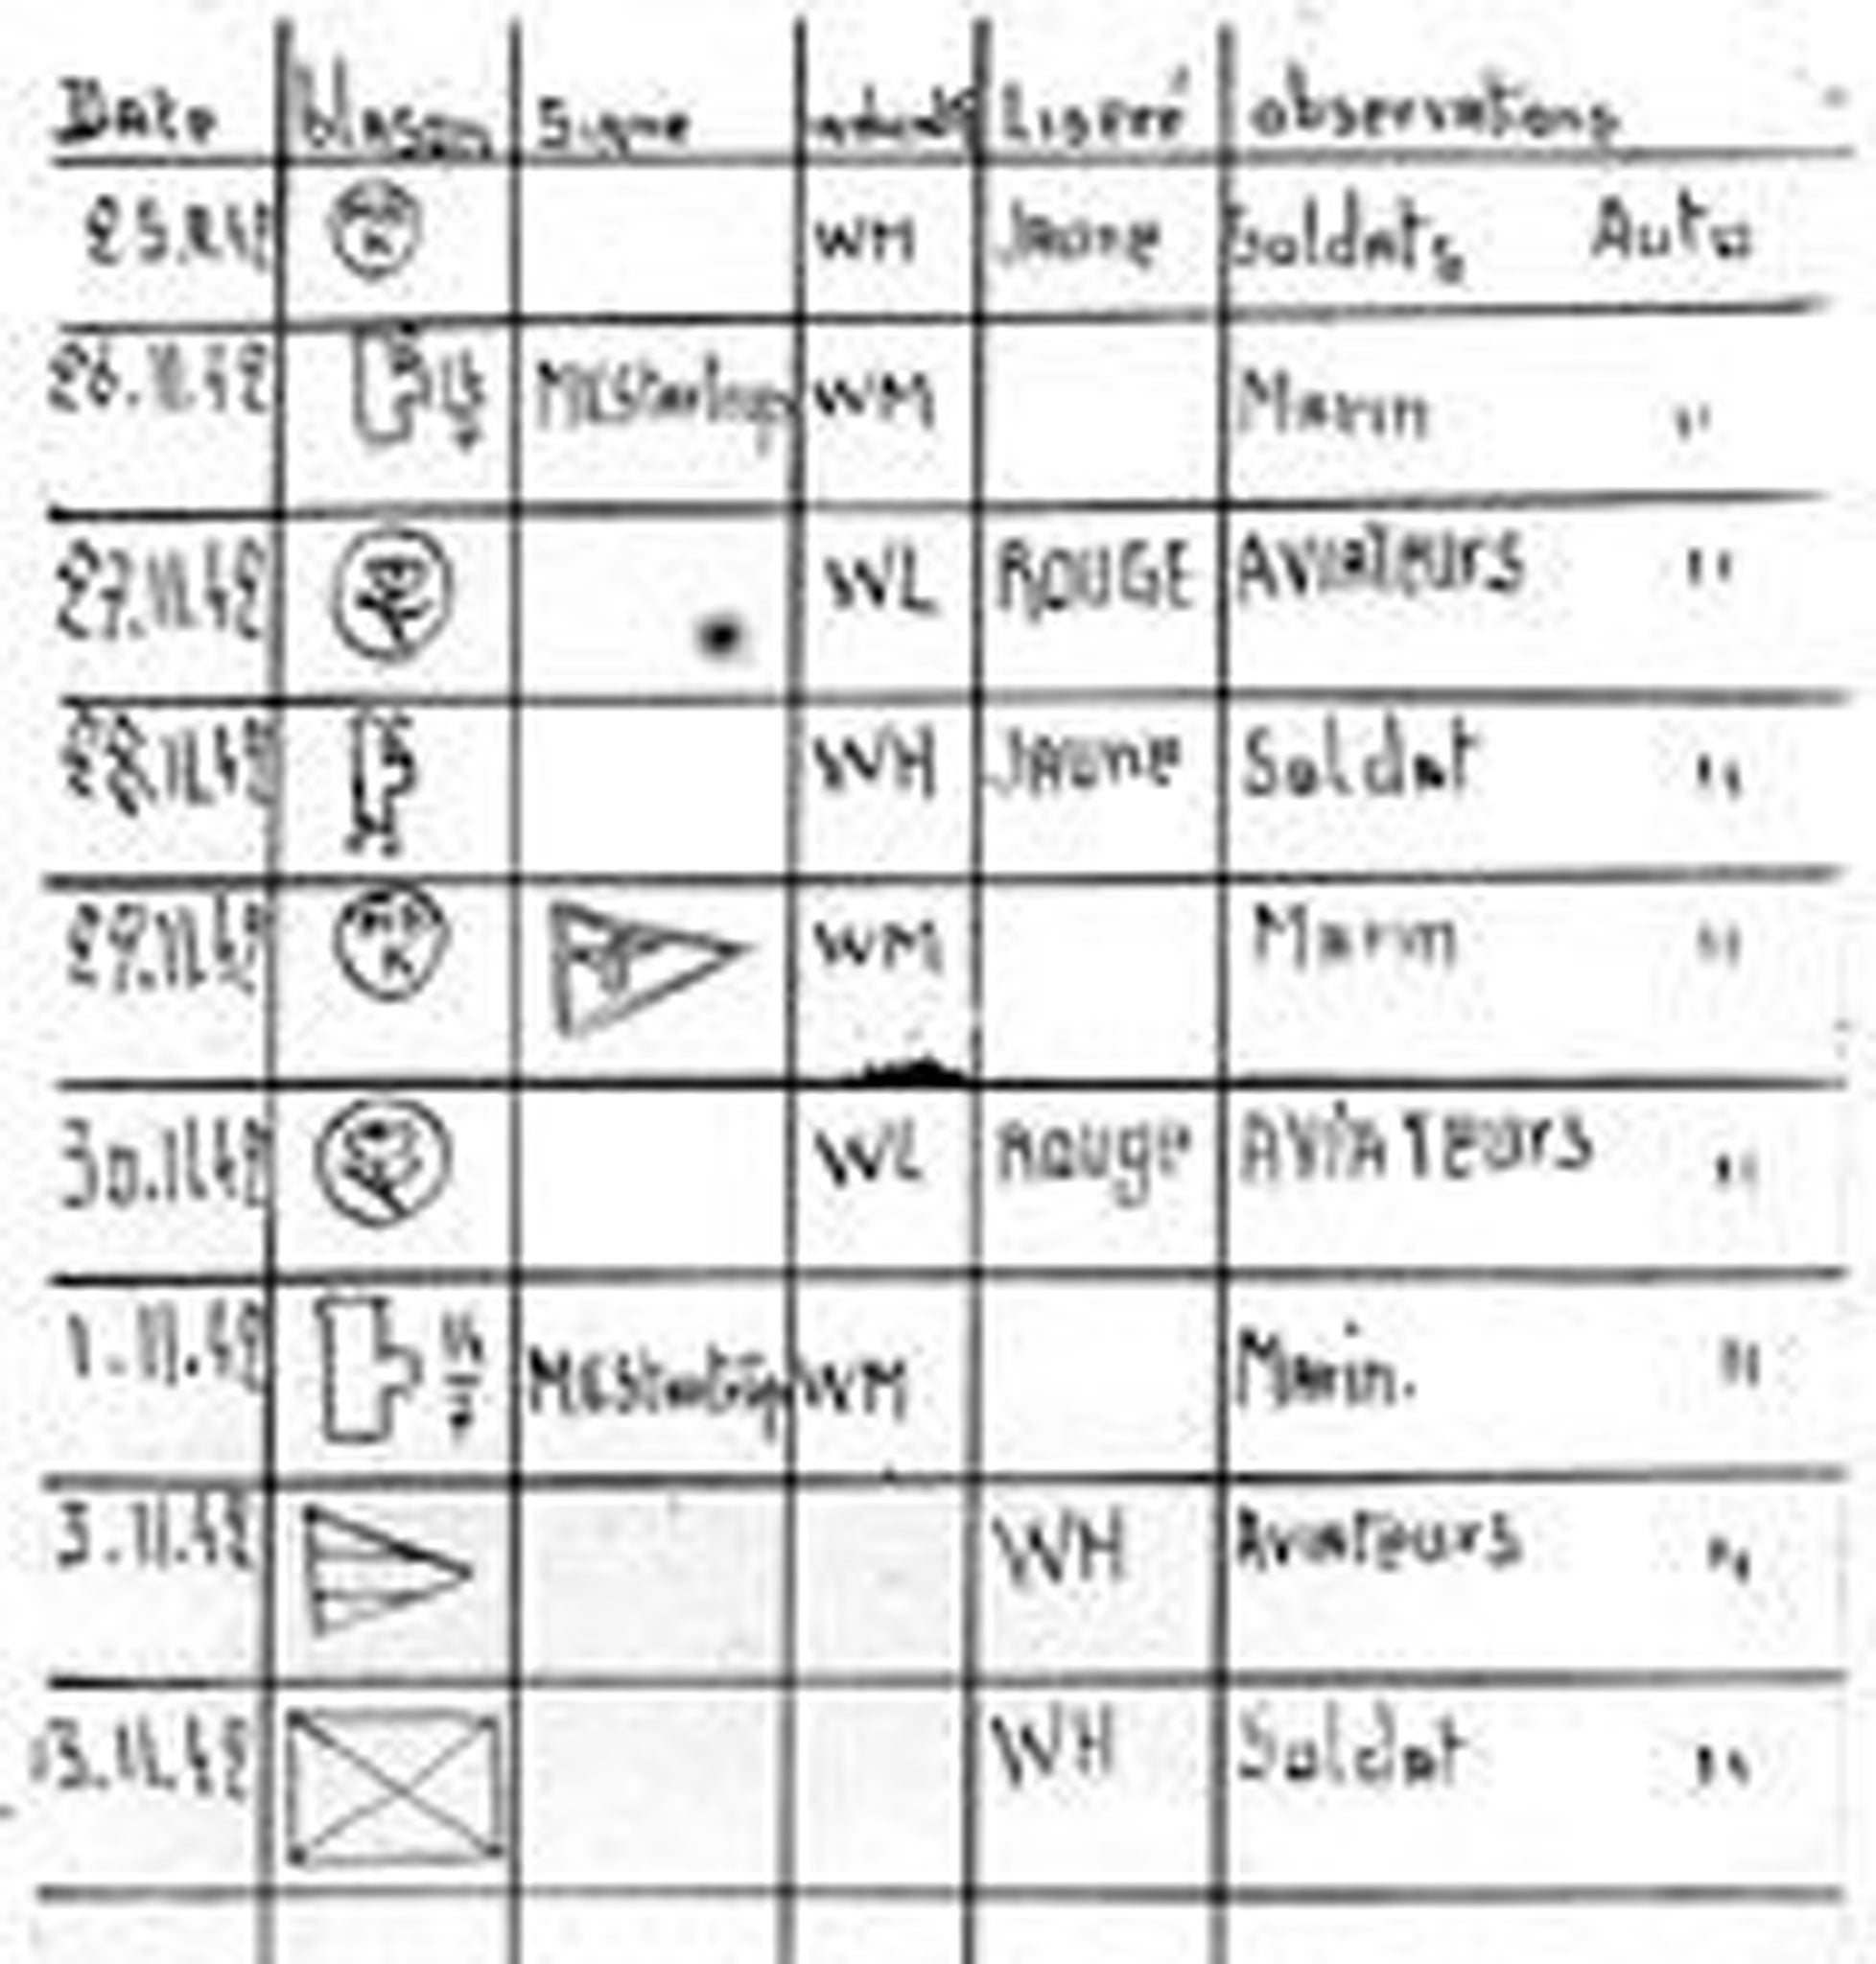 Date blason Signe Liseré observations
WM Jaune Soldats Auto
26.11.42 WM Marin "
27.11.42 WL ROUGE AViATeurs "
28.11.42 WH JAune Soldat "
29.11.42 WM Marin "
30.11.42 WL Rouge AViATeurs "
1.11.42 WM Marin. "
3.11.42 WH AviATeurs "
13.11.42 WH Soldat "